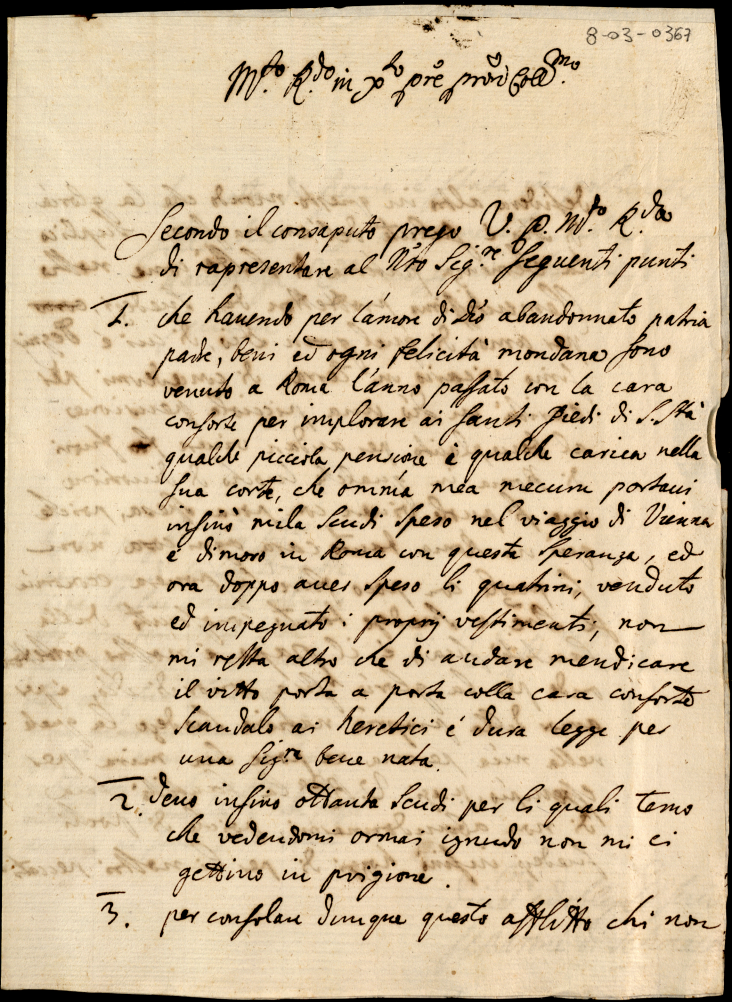 8-03-0367
M.to R.do in Xto pre pron Coll.mo
Secondo il consaputo prego V. P. M.to R.da
di rapresentare al Nro Sig.re seguenti punti
1. che havendo per l'amore di Dio abandonnato patria
padre, beni ed ogni felicità mondana sono
venuto a Roma l'anno passato con la cara
consorte per implorare ai santi Piedi di S. Stà
qualche picciola pensione è qualche carica nella
sua corte, che omnia mea mecum portavi
insino mila scudi speso nel viaggio di Vienna
e dimoro in Roma con queste speranza, ed
ora doppo aver speso li quatrini, venduto
ed impegnato i proprij vestimenti, non
mi resta altro che di andare mendicare
il vitto porta a porta colla cara consorte
scandalo ai heretici é dura legge per
una Sig.ra bene nata.
2. devo insino ottanta scudi per li quali temo
che vedendomi ormai ignudo non mi ci
gettino in prigione.
3. per consolare dunque questo afflitto chi non